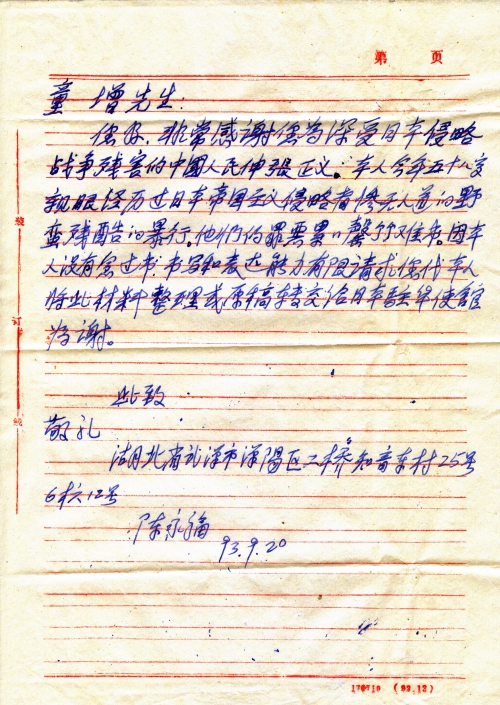 第 页
童增先生:
您好,非常感谢您为深受日本侵略
战争残害的中國人民伸張正义。本人今年五十八岁
親眼经历过日本帝国主义侵略者惨无人道的野
蛮残酷的暴行。他們的罪悪累〃罄竹难书。因本
人没有念过书,书写和表达能力有限请求您代本人
将此材料整理或原稿转交给日本駐华使館
为谢。
此致
敬礼
湖北省武漢市漢陽区二桥知音东村25号
6栋12号
陈永福
93.9.20
装
订
线
170710 (92.12)